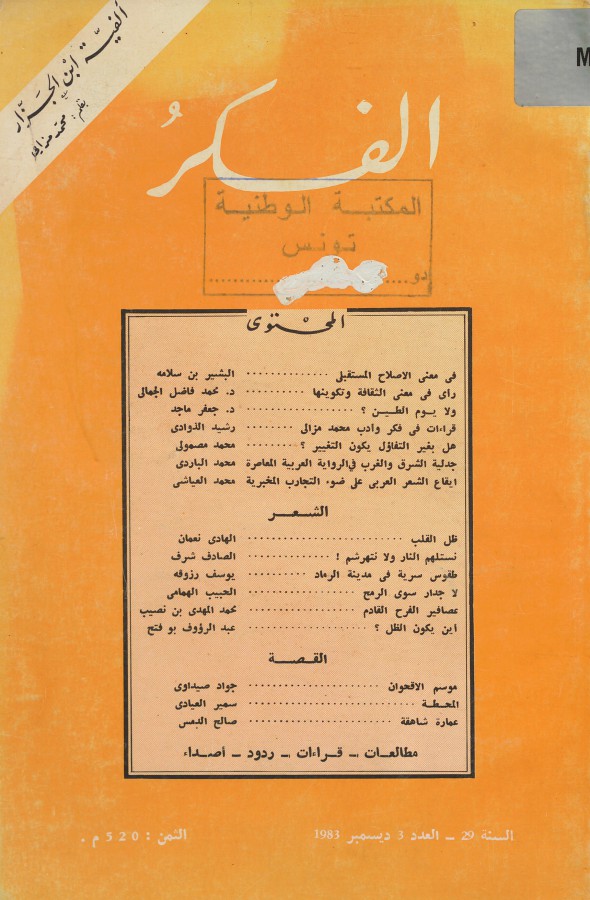 ألفيّة ابن الجزّار
بقلم: محمد مزالي
M
الفكرُ
المكتبة الوطنية
تونس
دو
المحتوى
فى معنى الاصلاح المستقبلى ............. البشير بن سلامه
رأى فى معنى الثقافة وتكوينها ......... د. محمد فاضل الجمالى
ولا يوم الطين ؟ ............. د. جعفر ماجد
قراءات فى فكر وأدب محمد مزالى ........ رشيد الذوادى
هل بغير التفاؤل يكون التغيير ؟ ........ محمد مصمولى
جدلية الشرق والغرب فى الرواية العربية المعاصرة محمد الباردى
ايقاع الشعر العربى على ضوء التجارب المخبرية محمد العياشى
الشعر
ظل القلب ......................... الهادى نعمان
نستلهم النار ولا نتهرشم ! .............. الصادق شرف
طقوس سرية فى مدينة الرماد ............ يوسف رزوقه
لا جدار سوى الرمح ................. الحبيب الهمامى
عصافير الفرح القادم ................. محمد المهدى بن نصيب
أين يكون الظل ؟ ................... عبد الرؤوف بو فتح
القصة
موسم الاقحوان ..................... جواد صيداوى
المحطة ........................... سمير العيادى
عمارة شاهقة ....................... صالح الدمس
مطالعات ـ قراءات ـ ردود ـ أصداء
السنة 29 ـ العدد 3 ديسمبر 1983
الثمن : 520 م .